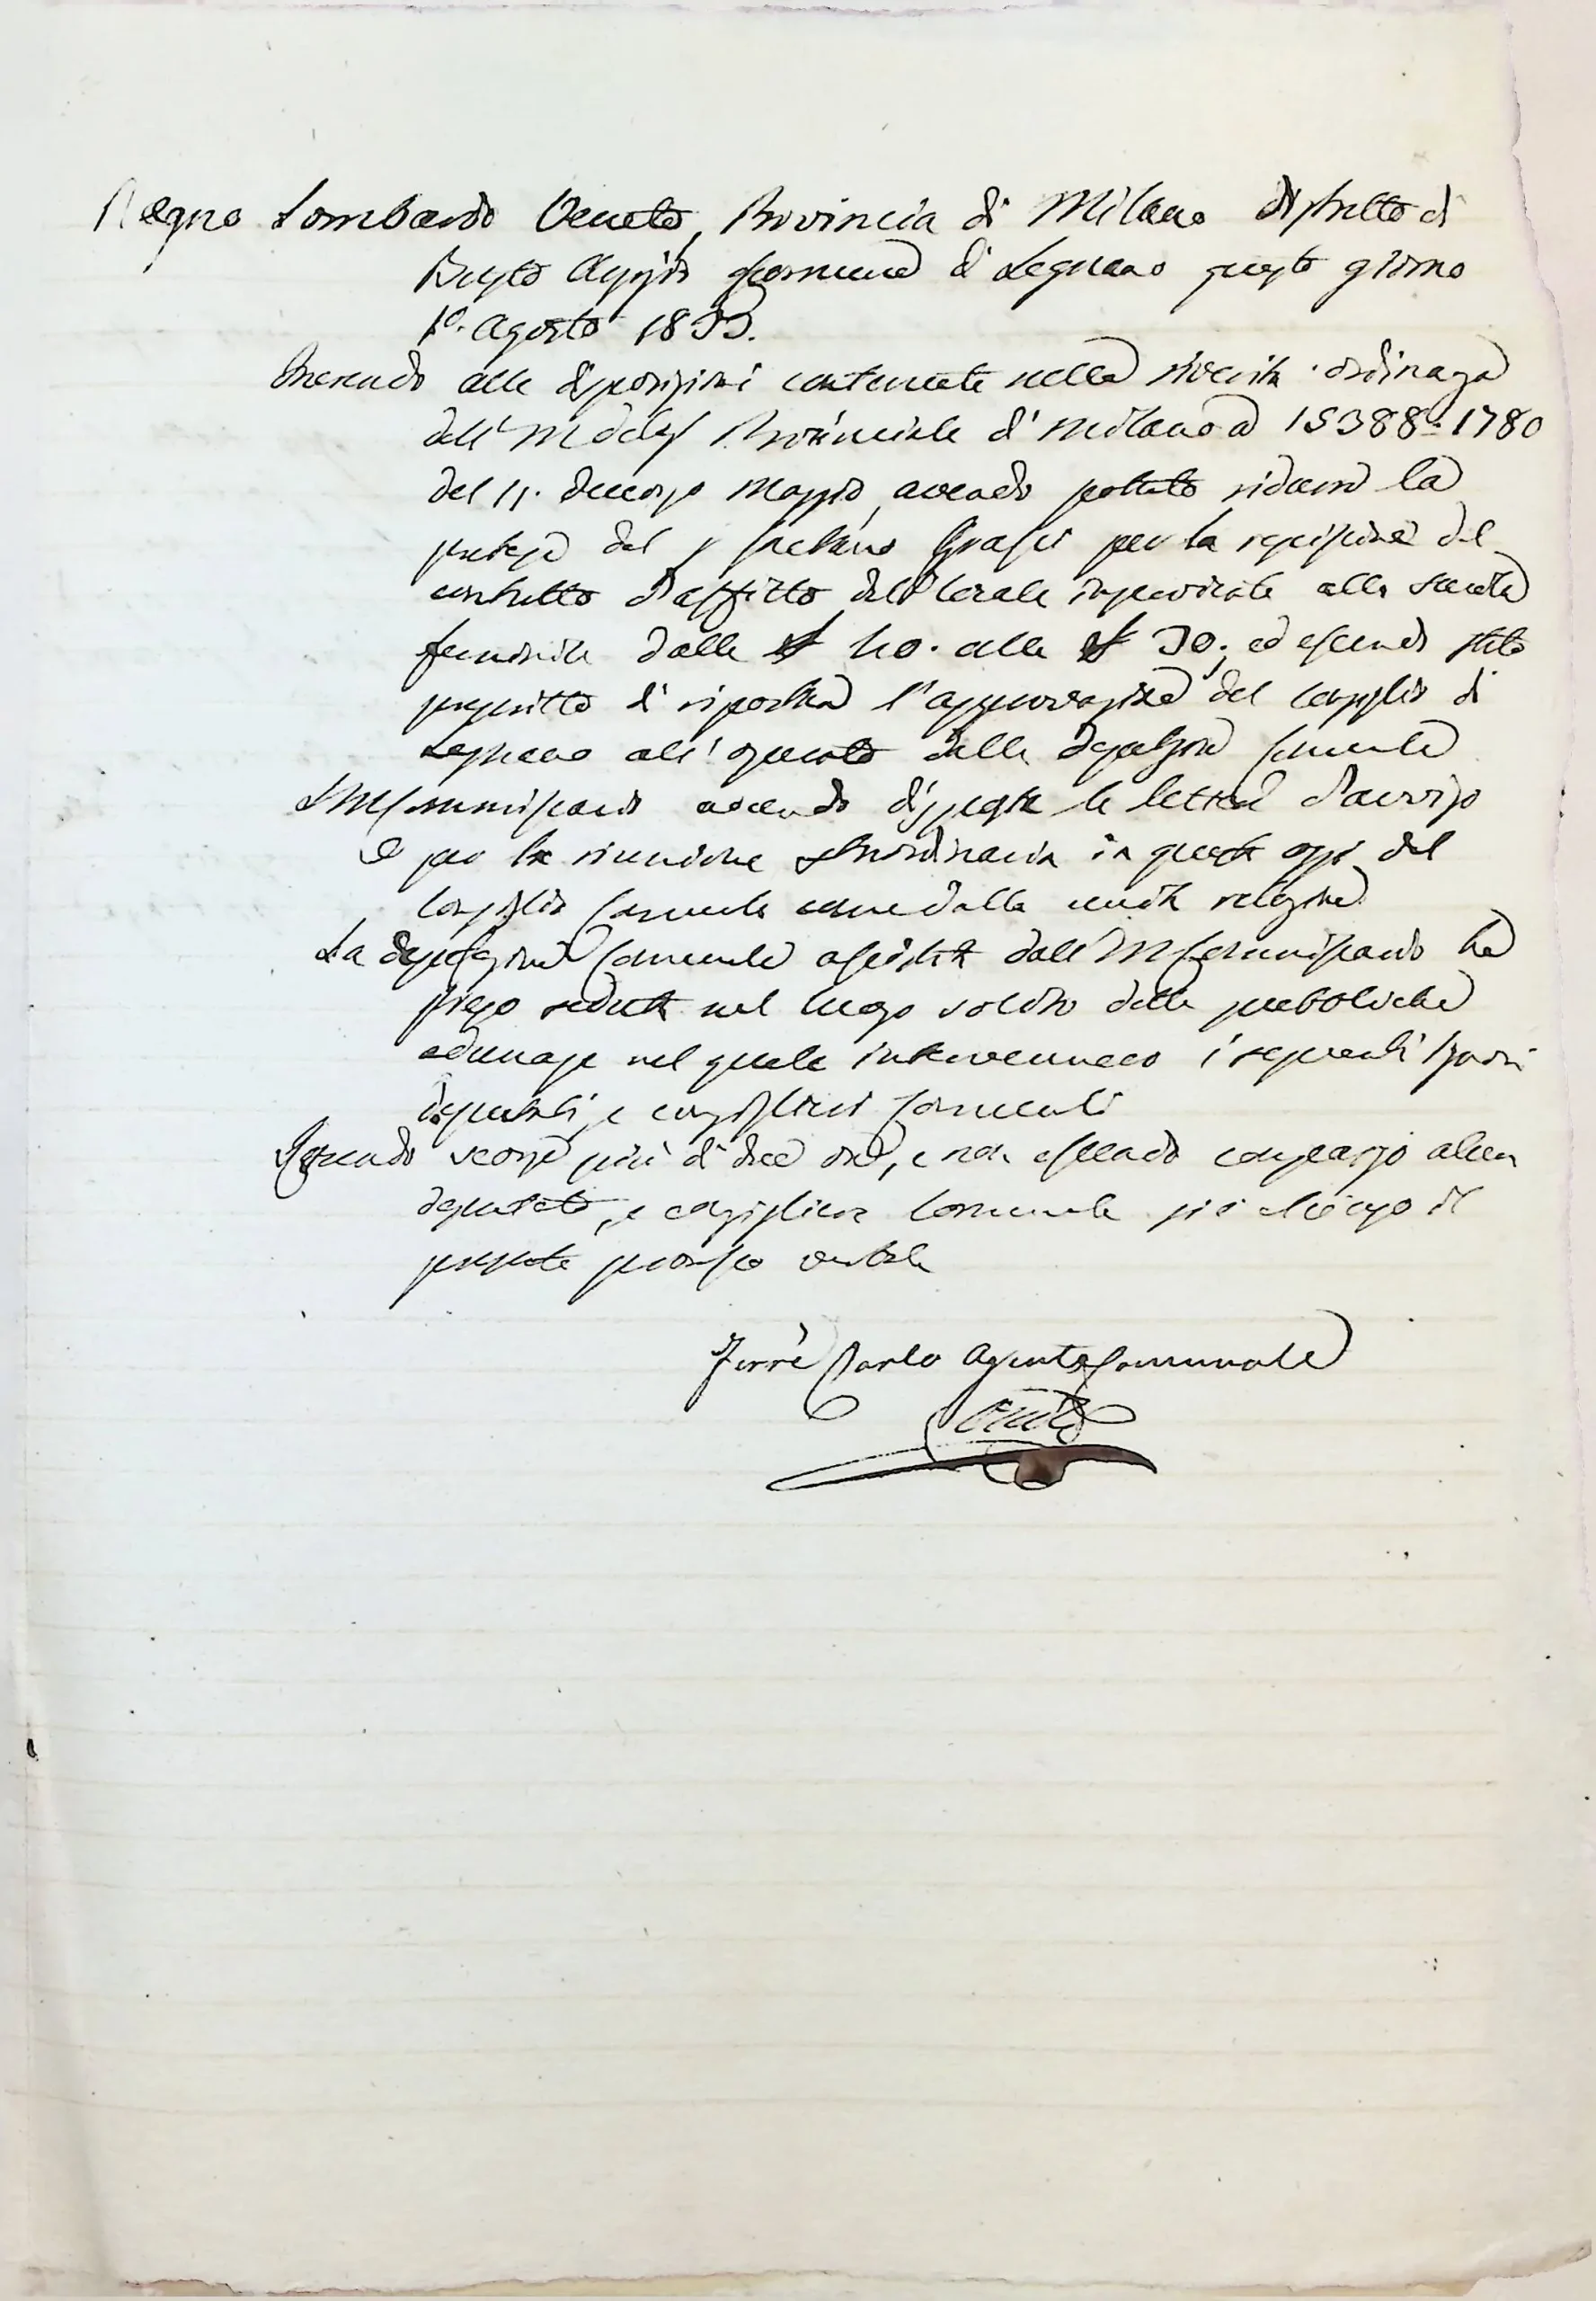 Regno Lombardo Veneto, Provincia di Milano distretto di
Busto Arsizio Comune di Legnano questo giorno
1°. Agosto 1833.
Inerendo alle disposizioni contenute nella riverita ordinanza
dell' Delegne Provinciale di Milano 15388 1780
del 11. decorso Maggio, avendo potuto ridurre la
pretesa del Gaetano per la del
contratto d'affitto del locale inserviente alla scuola
femminile dalle 40. alle 30; ed essendo stato
prescritto di riportare l'approvazione del Consiglio di
Legnano all'operato della deputazione Comunale
avendo le lettere d'avviso
per la riunione straordinaria in questi oggi del
Consiglio Comunale come dalla unita relazione
La deputazione Comunale assistita dall' Commissario ha
preso seduta nel luogo solito delle pubbliche
adunanze nel quale intervennero i seguenti Signori
deputati, e consiglieri Comunali
Essendo scorse più di due ore, e non essendo comparso alcun
deputato, e consigliere Comunale si è chiuso il
presente processo verbale
Ferrè Carlo Agente Comunale